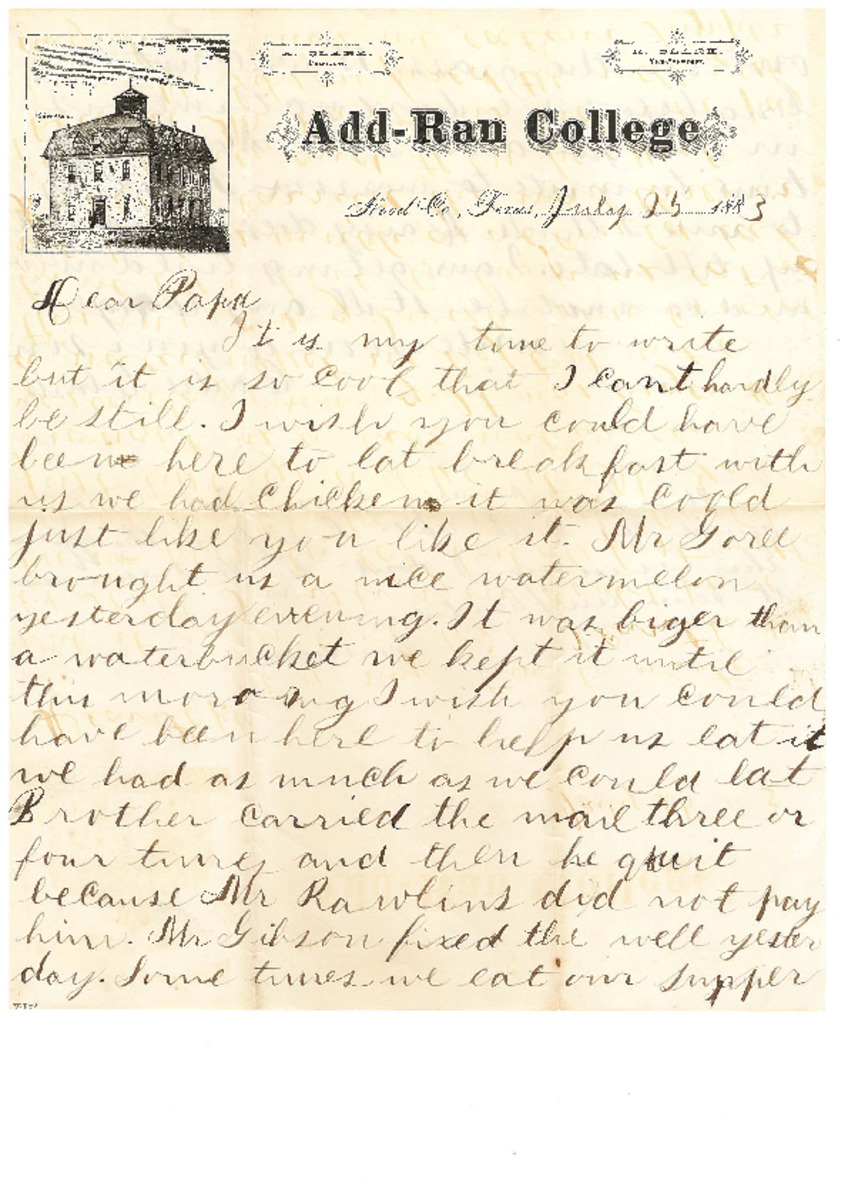 A. CLARK,
President.
R. CLARK,
Vice-President.
Add-Ran College
Hood Co., Texas, July 25 1883
Dear Papa
It is my time to write
but it is so cool that I cant hardly
be still. I wish you could have
been here to eat breakfast with
us we had chicken it was coold
just like you like it. Mr Goree
brought us a nice watermelon
yesterday evening. It was biger than
a waterbucket we kept it until
this morning I wish you could
have been here to help us eat it
we had as much as we could eat
Brother carried the mail three or
four times and then he quit
because Mr Rawlins did not pay
him. Mr Gibson fixed the well yester
day. Some times we eat our supper